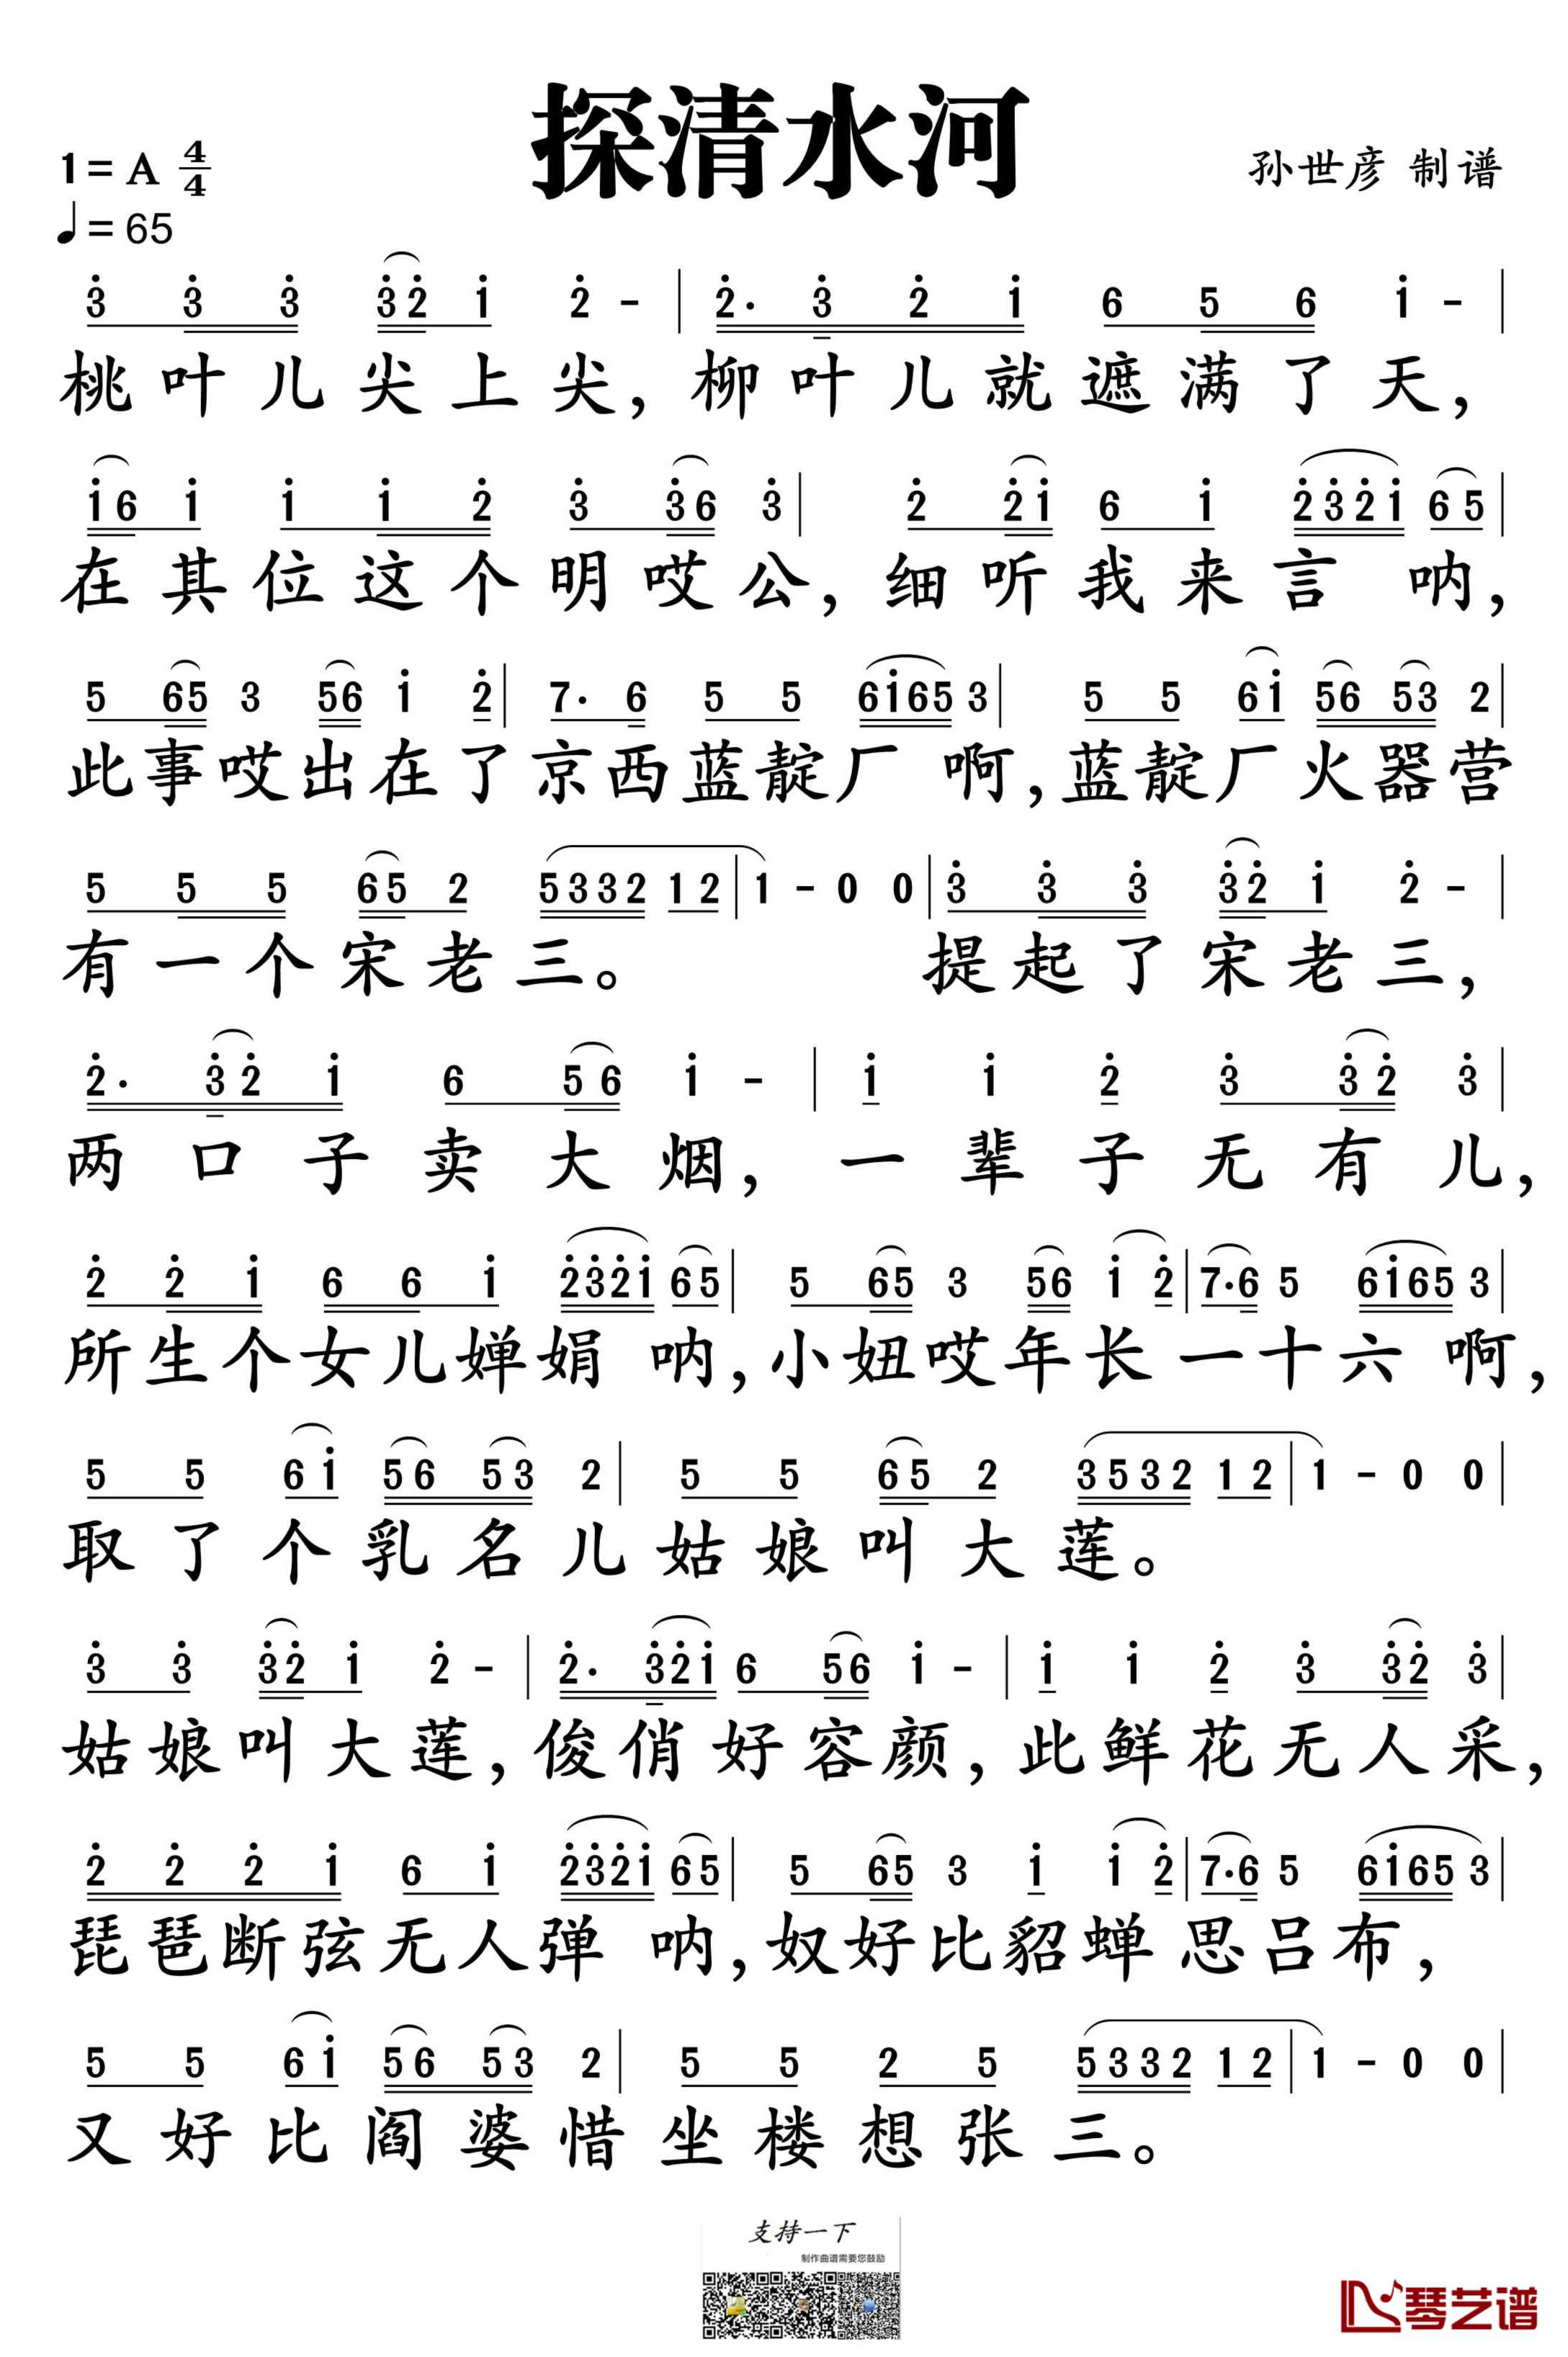 探清水河
1= A 4/4
孙世彦 制谱
♩= 65
3̇ 3̇ 3̇ 3̇2̇ 1̇ 2̇ - | 2̇· 3̇ 2̇ 1̇ 6 5 6 1̇ - |
桃叶儿尖上尖，柳叶儿就遮满了天，
1̇6 1̇ 1̇ 1̇ 2̇ 3̇ 3̇6 3̇ | 2̇ 2̇1̇ 6 1̇ 2̇3̇2̇1̇ 65 |
在其位这个明哎公，细听我来言 呐，
5 65 3 56 1̇ 2̇ | 7· 6 5 5 61̇65 3 | 5 5 61̇ 56 53 2 |
此事哎出在了京西蓝靛厂 啊，蓝靛厂火器营
5 5 5 65 2 5332 12 | 1 - 0 0 | 3̇ 3̇ 3̇ 3̇2̇ 1̇ 2̇ - |
有一个宋老三。 提起了宋老三，
2̇· 3̇2̇ 1̇ 6 56 1̇ - | 1̇ 1̇ 2̇ 3̇ 3̇2̇ 3̇ |
两口子卖大烟，一辈子无有儿，
2̇ 2̇ 1̇ 6 6 1̇ 2̇3̇2̇1̇ 65 | 5 65 3 56 1̇ 2̇ | 7·6 5 61̇65 3 |
所生个女儿婵娟 呐，小妞哎年长一十六 啊，
5 5 61̇ 56 53 2 | 5 5 65 2 3532 12 | 1 - 0 0 |
取了个乳名儿姑娘叫大莲。
3̇ 3̇ 3̇2̇ 1̇ 2̇ - | 2̇· 3̇2̇1̇ 6 56 1̇ - | 1̇ 1̇ 2̇ 3̇ 3̇2̇ 3̇ |
姑娘叫大莲，俊俏好容颜，此鲜花无人采，
2̇ 2̇ 2̇ 1̇ 6 1̇ 2̇3̇2̇1̇ 65 | 5 65 3 1̇ 1̇ 2̇ | 7·6 5 61̇65 3 |
琵琶断弦无人弹 呐，奴好比貂蝉思吕布，
5 5 61̇ 56 53 2 | 5 5 2 5 5332 12 | 1 - 0 0 |
又好比阎婆惜坐楼想张三。
支持一下
制作曲谱需要您鼓励
琴艺谱